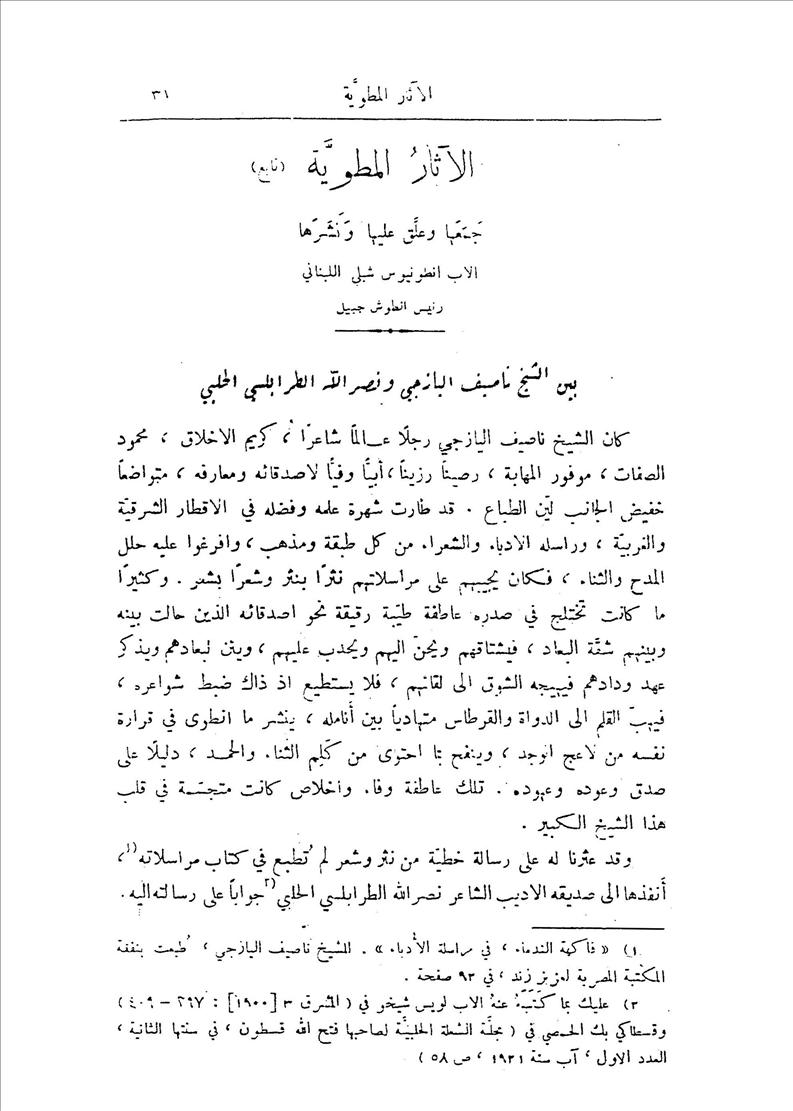 الآثار المطويَّة ٣١
الآثارُ المطويَّة (تابع)
جَمَعَها وعلَّق عليها ونَشَرَها
الاب انطونيوس شبلي اللبناني
رئيس انطوش جبيل
بين الشيخ ناصيف اليازجي ونصر الله الطرابلسي الحلبي
كان الشيخ ناصيف اليازجي رجلًا عالمًا شاعرًا ، كريم الاخلاق ، محمود
الصفات ، موفور المهابة ، رصينًا رزينًا ، أبيًّا وفيًّا لاصدقائه ومعارفه ، متواضعاً
خفيض الجانب ليّن الطباع . قد طارت شهرة علمه وفضله في الاقطار الشرقيّة
والغربيّة ، وراسله الادباء والشعراء من كل طبقة ومذهب ، وافرغوا عليه حلل
المدح والثناء ، فكان يجيبهم على مراسلاتهم نثرًا بنثر وشعرًا بشعر . وكثيرًا
ما كانت تختلج في صدره عاطفة طيّبة رقيقة نحو اصدقائه الذين حالت بينه
وبينهم شقَّة البعاد ، فيشتاقهم ويحنّ اليهم ويحدب عليهم ، ويئن لبعادهم ويذكر
عهد ودادهم فيهيجه الشوق الى لقائهم ، فلا يستطيع اذ ذاك ضبط شواعره ،
فيهبّ القلم الى الدواة والقرطاس متهادياً بين أنامله ، ينشر ما انطوى في قرارة
نفسه من لاعج الوجد ، وينفح بما احتوى من كَلِم الثناء والحمد ، دليلًا على
صدق وعوده وعهوده . تلك عاطفة وفاء واخلاص كانت متجسّمة في قلب
هذا الشيخ الكبير .
وقد عثرنا له على رسالة خطيّة من نثر وشعر لم تُطبع في كتاب مراسلاته (١ ،
أنفذها الى صديقه الاديب الشاعر نصر الله الطرابلسي الحلبي (٢ جواباً على رسالته اليه .
١) « فاكهة الندماء ، في مراسلة الأدباء » . للشيخ ناصيف اليازجي ، طُبعت بنفقة
المكتبة المصرية لعزيز زند ، في ٩٣ صفحة .
٢) عليك بما كتبَهُ عنهُ الاب لويس شيخو في ( المشرق ٣ [١٩٠٠] : ٣٩٧- ٤٠٩)
وقسطاكي بك الحمصي في ( مجلَّة الشعلة الحلبيَّة لصاحبها فتح الله قسطون ، في سنتها الثانية ،
العدد الاول ، آب سنة ١٩٢١ ، ص ٥٨ )